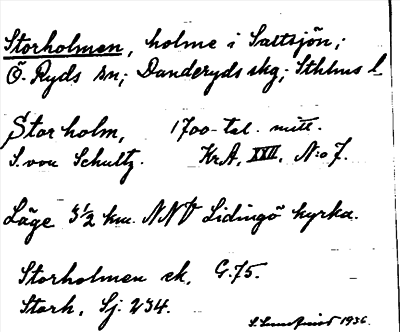 Storholmen, holme i Saltsjön;
Ö. Ryds sn; Danderyds skg; Sthlms l
Storholm, 1700-tal. mitt.
S. von Schultz. KrA, XXII, N:o 7.
Läge 3 1/2 km. NNV Lidingö kyrka.
Storholmen ek. G. 75.
Storh. Sj. 234.
1936.